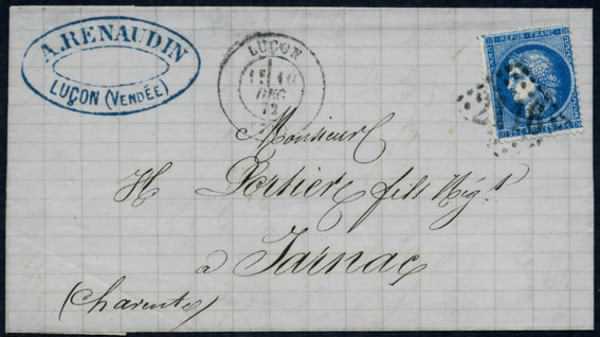 A. RENAUDIN
LUÇON (VENDÉE)
LUÇON
DEC
72
REPUB. FRANC.
Monsieur
H Portier fils Nég.t
à Jarnac
(Charente)